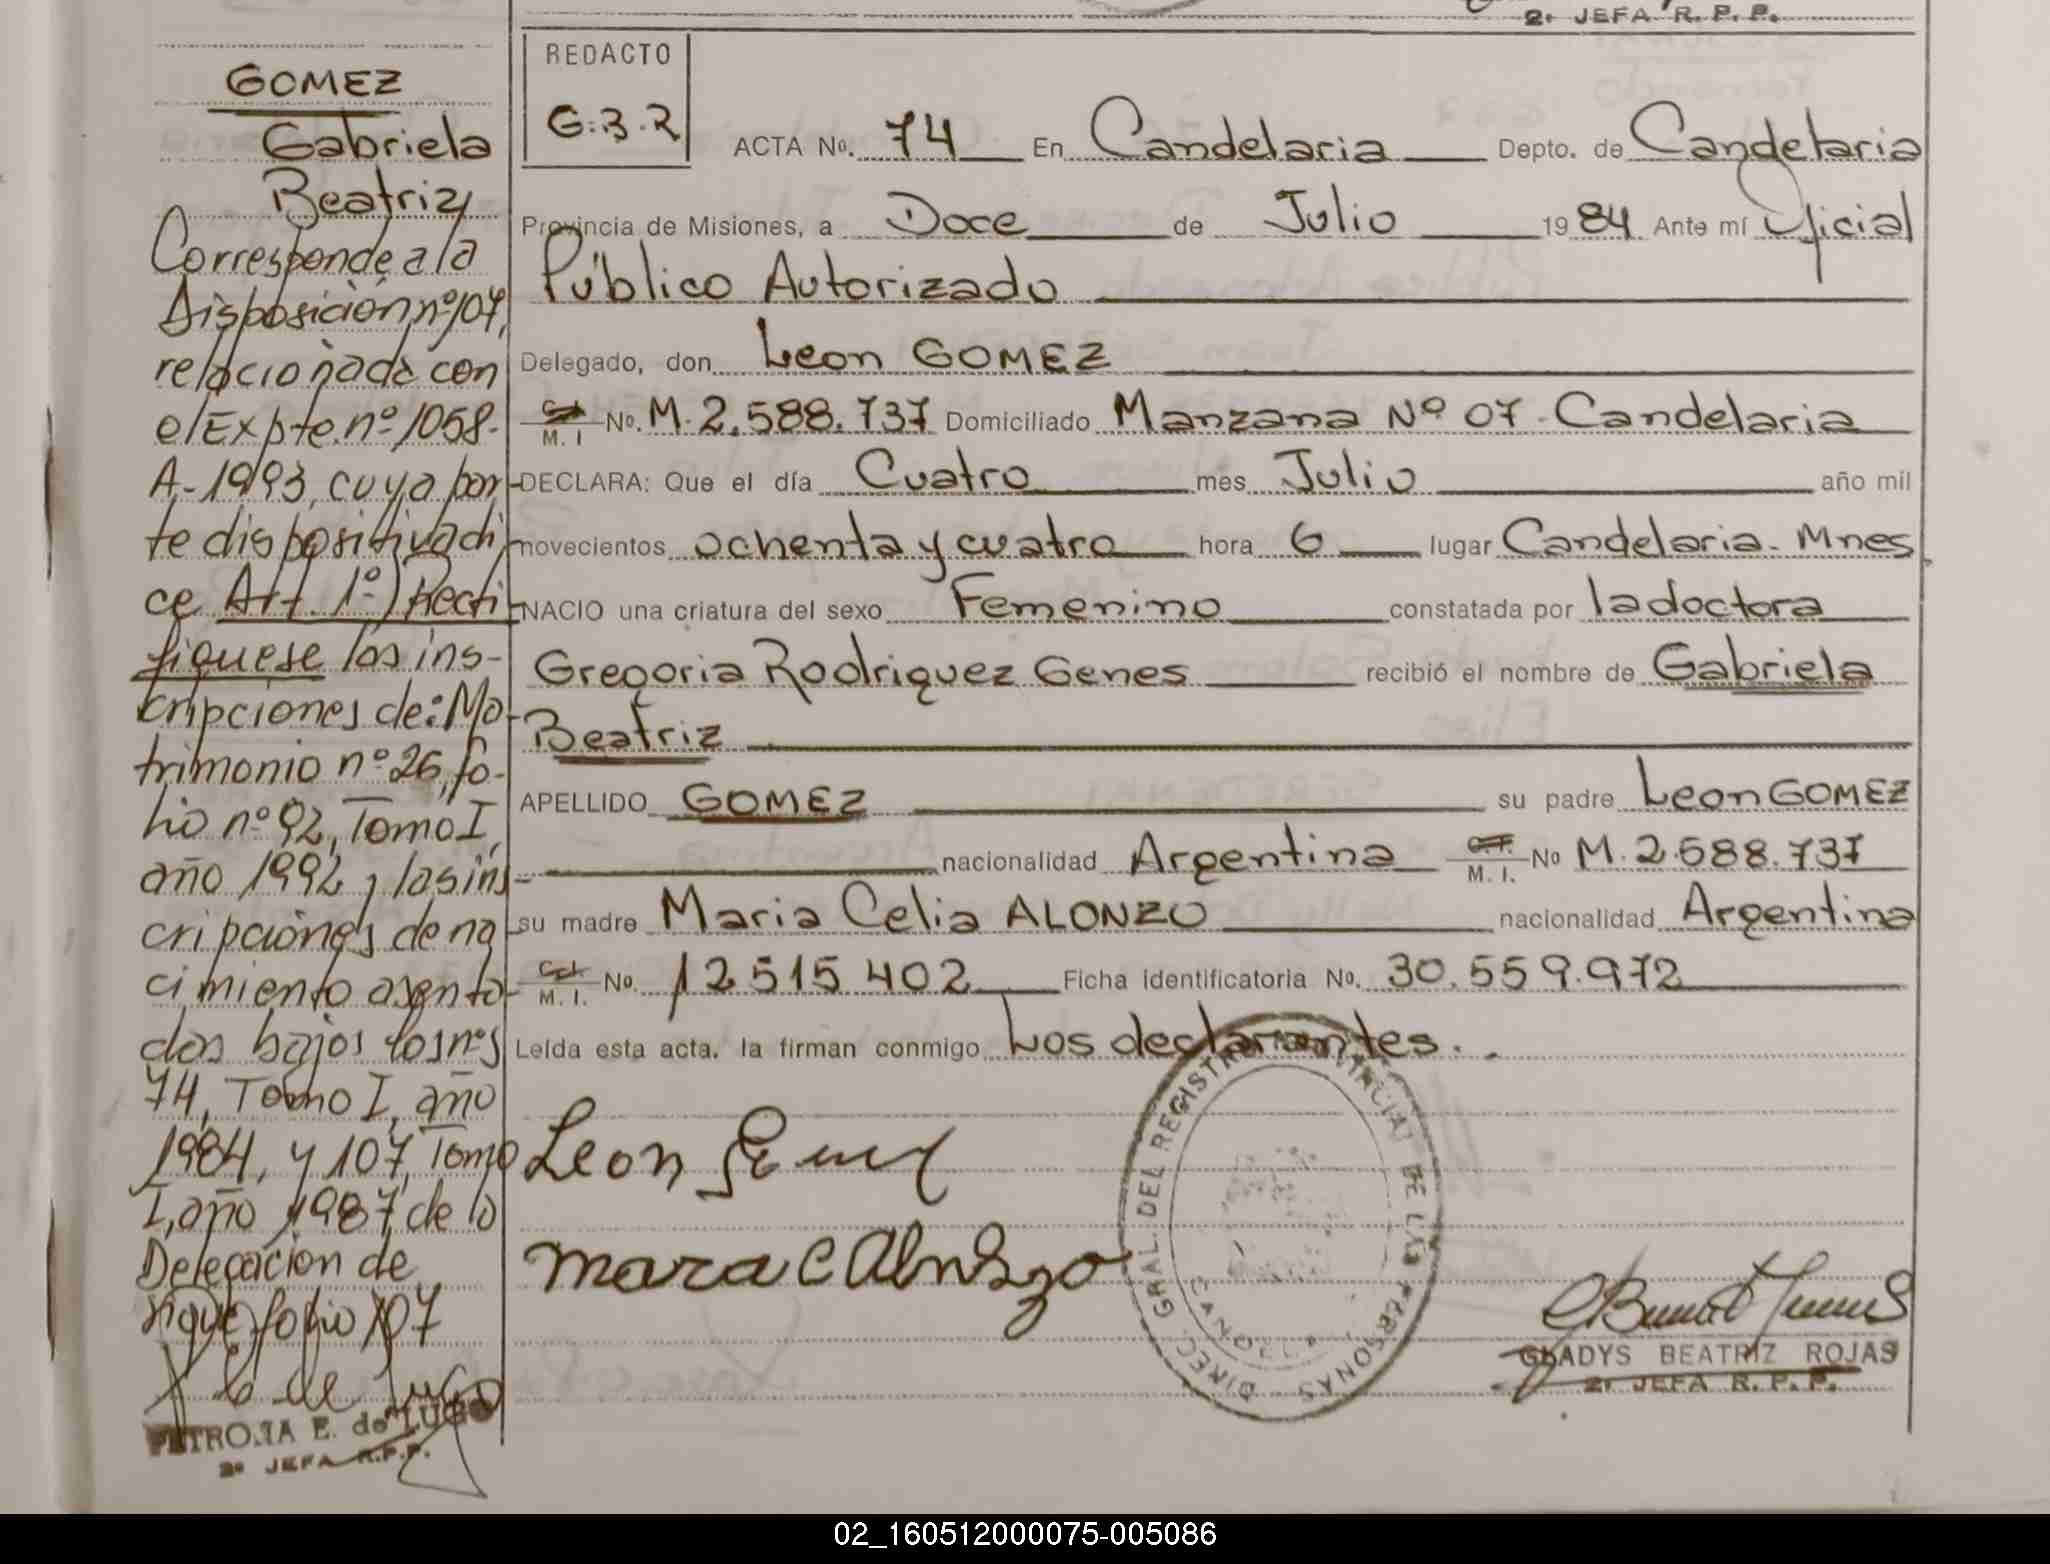 2º JEFA R. P. P.
GOMEZ
Gabriela
Beatriz
Corresponde a la
Disposición nº 107,
relacionada con
el Expte. nº 1058-
A-1993, cuya par
te dispositiva di
ce Art. 1º) Recti
fíquese las ins-
cripciones de: Ma
trimonio nº 26, fo-
lio nº 92, Tomo I,
año 1992, las ins-
cripciones de na
cimiento asenta
das bajos los nºs
74, Tomo I, año
1984, y 107, Tomo
I, año 1987, de la
Delegación de
sigue folio 107
PETRONA E. de LUGO
2º JEFA R.P.P.
REDACTO
G.B.R
ACTA No. 74 En Candelaria Depto. de Candelaria
Provincia de Misiones, a Doce de Julio 1984 Ante mí Oficial
Público Autorizado
Delegado, don Leon GOMEZ
M. I No. M. 2.588.737 Domiciliado Manzana Nº 07 - Candelaria
DECLARA: Que el día Cuatro mes Julio año mil
novecientos ochenta y cuatro hora 6 lugar Candelaria - Mnes
NACIO una criatura del sexo Femenino constatada por la doctora
Gregoria Rodriguez Genes recibió el nombre de Gabriela
Beatriz
APELLIDO GOMEZ su padre Leon GOMEZ
nacionalidad Argentina C.I. M. I. No M. 2.588.737
su madre Maria Celia ALONZO nacionalidad Argentina
C.I. M. I. No. 12515402 Ficha identificatoria No. 30.559.972
Leída esta acta, la firman conmigo Los declarantes.
Leon
mara C Alonzo
DIREC. GRAL. DEL REGISTRO PROVINCIAL DE LAS PERSONAS
GLADYS BEATRIZ ROJAS
2º JEFA R. P. P.
02_160512000075-005086